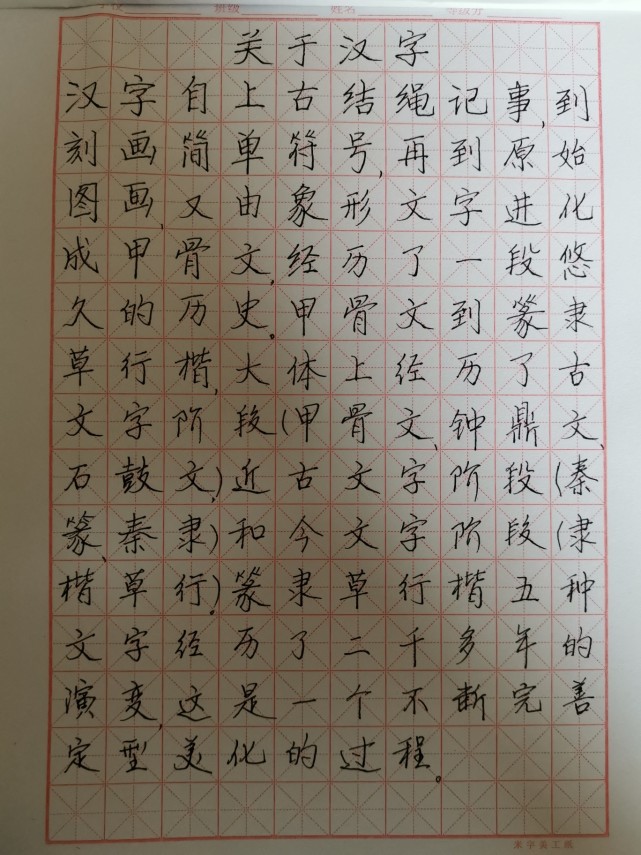 班级 姓名 等级分
关于汉字
汉字自上古结绳记事,到
刻画简单符号,再到原始
图画,又由象形文字进化
成甲骨文,经历了一段悠
久的历史。甲骨文到篆隶
草行楷,大体上经历了古
文字阶段(甲骨文、钟鼎文、
石鼓文,)近古文字阶段(秦
篆、秦隶)和今文字阶段(隶
楷草行)。篆隶草行楷五种
文字经历了二千多年的
演变,这是一个不断完善
定型美化的过程。